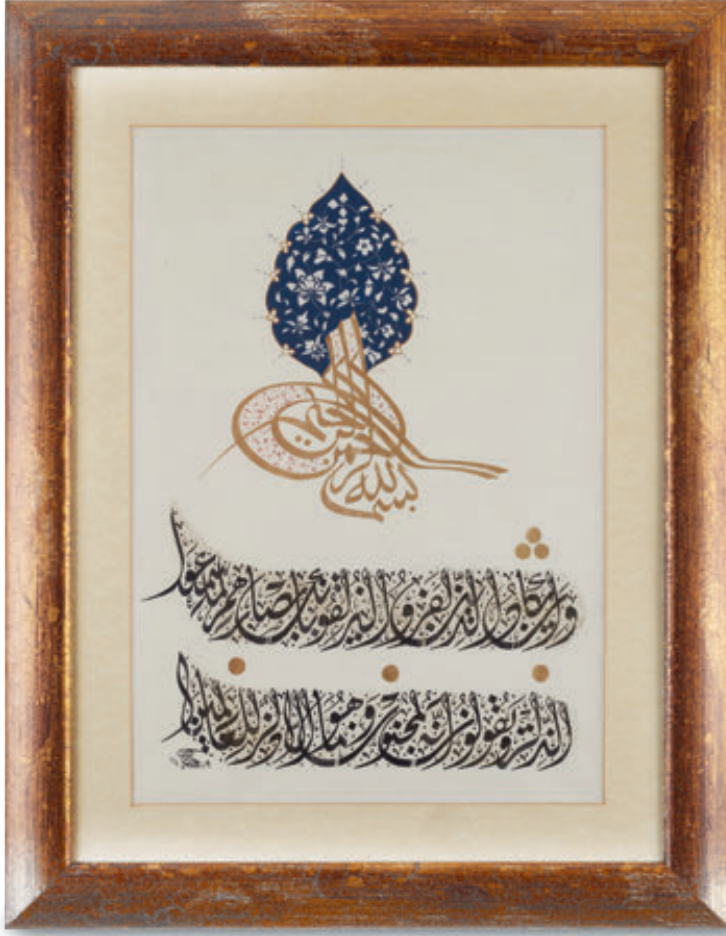 بسم الله الرحمن الرحيم
وإن يكاد الذين كفروا ليزلقونك بأبصارهم لما سمعوا
الذكر ويقولون إنه لمجنون وما هو إلا ذكر للعالمين